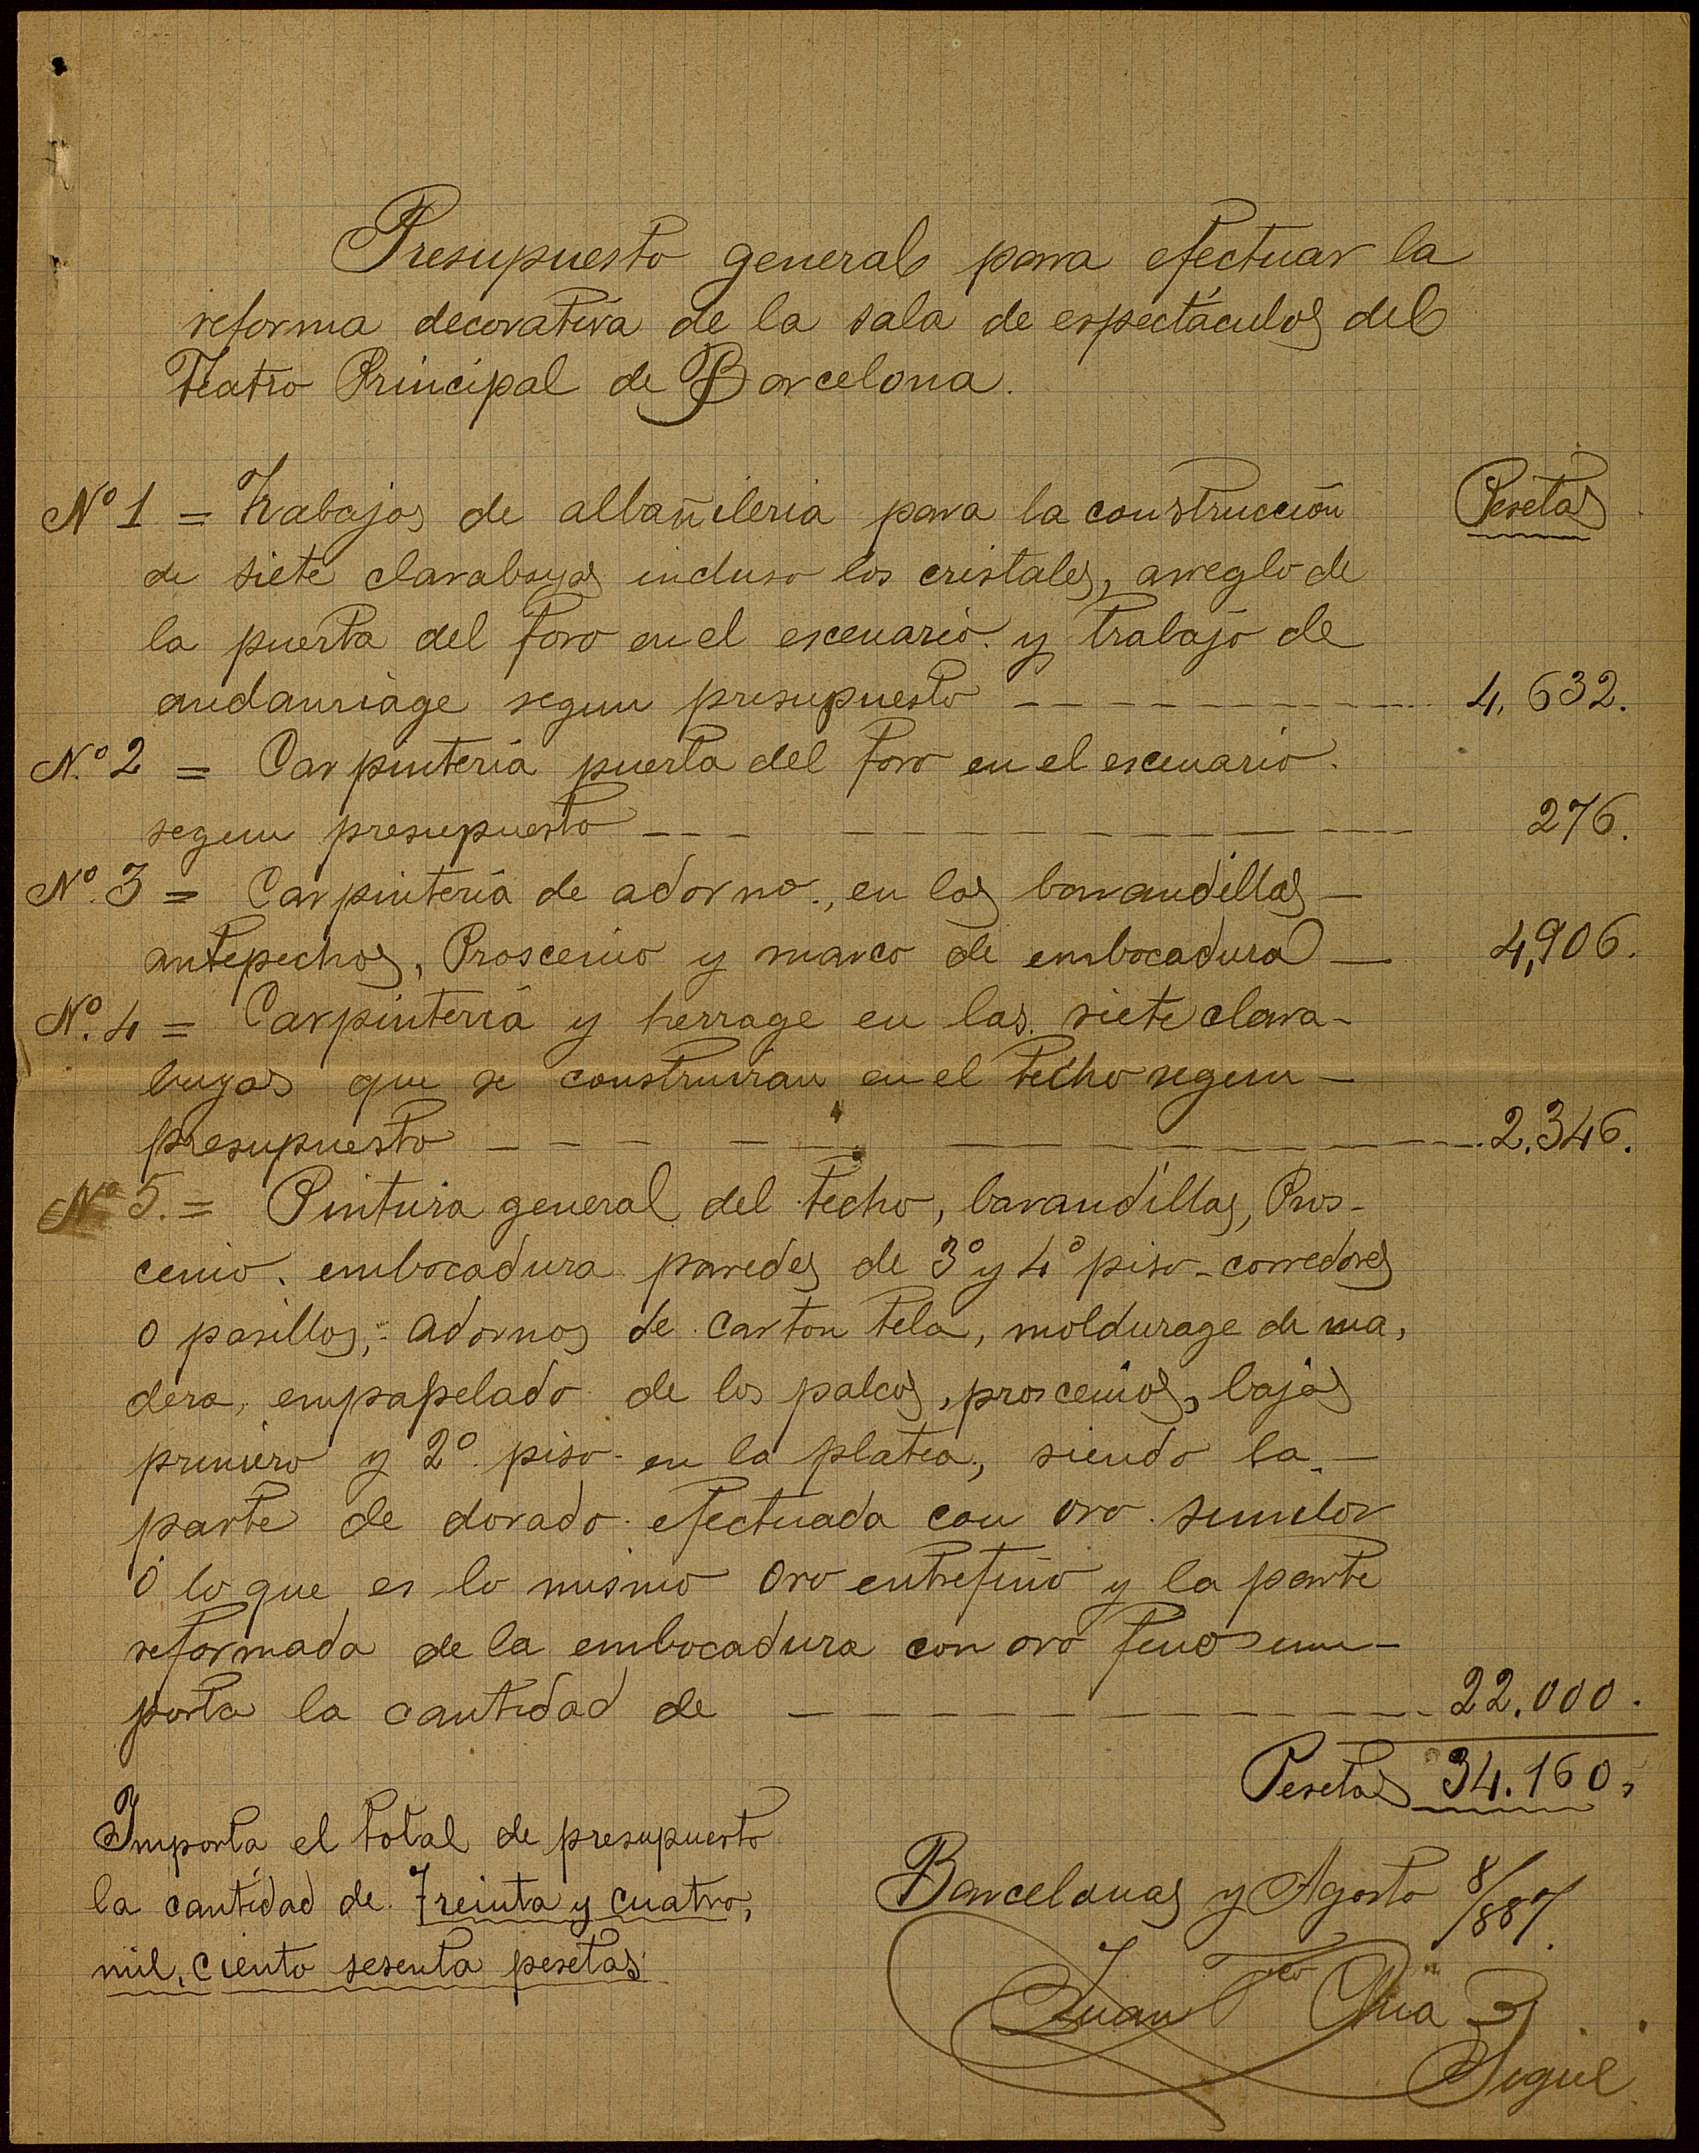 Presupuesto general para efectuar la
reforma decorativa de la sala de espectáculos del
Teatro Principal de Barcelona.
Pesetas
Nº 1 = Trabajos de albañileria para la construcción
de siete claraboyas incluso los cristales, arreglo de
la puerta del foro en el escenario y trabajo de
andamiage segun presupuesto 4,632.
N.º 2 = Carpinteria puerta del foro en el escenario.
segun presupuesto 276.
Nº. 3 = Carpinteria de adorno., en las barandillas
antepechos, Proscenio y marco de embocadura 4,906.
Nº. 4 = Carpinteria y herrage en las siete clara-
buyas que se construiran en el techo segun
presupuesto 2.346.
Nº 5. = Pintura general del techo, barandillas, Pros-
cenio, embocadura paredes de 3º y 4º piso - corredores
o pasillos, adornos de carton tela, moldurage de ma,
dera, empapelado de los palcos, proscenios, bajos
primero y 2º piso en la platea, siendo la
parte de dorado efectuada con oro similor
ó lo que es lo mismo oro entrefino y la parte
reformada de la embocadura con oro fino im-
porta la cantidad de 22.000.
Pesetas 34.160,
Importa el total de presupuesto
la cantidad de Treinta y cuatro,
mil, ciento sesenta pesetas
Barcelona y Agosto 8/887.
Juan Fco Chia